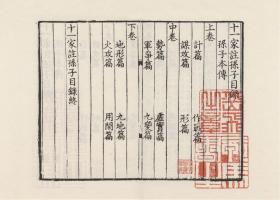 十一家註孫子目錄
孫子本傳
上卷
計篇 作戰篇
謀攻篇 形篇
中卷
勢篇 虛實篇
軍爭篇 九變篇
下卷
地形篇 九地篇
火攻篇 用間篇
十一家註孫子目錄終